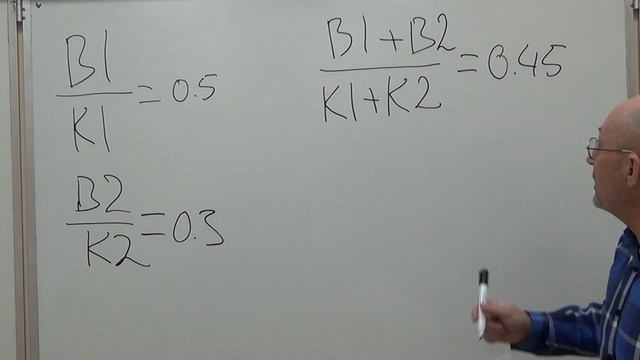 B1/K1 = 0.5
B2/K2 = 0.3
(B1+B2)/(K1+K2) = 0.45